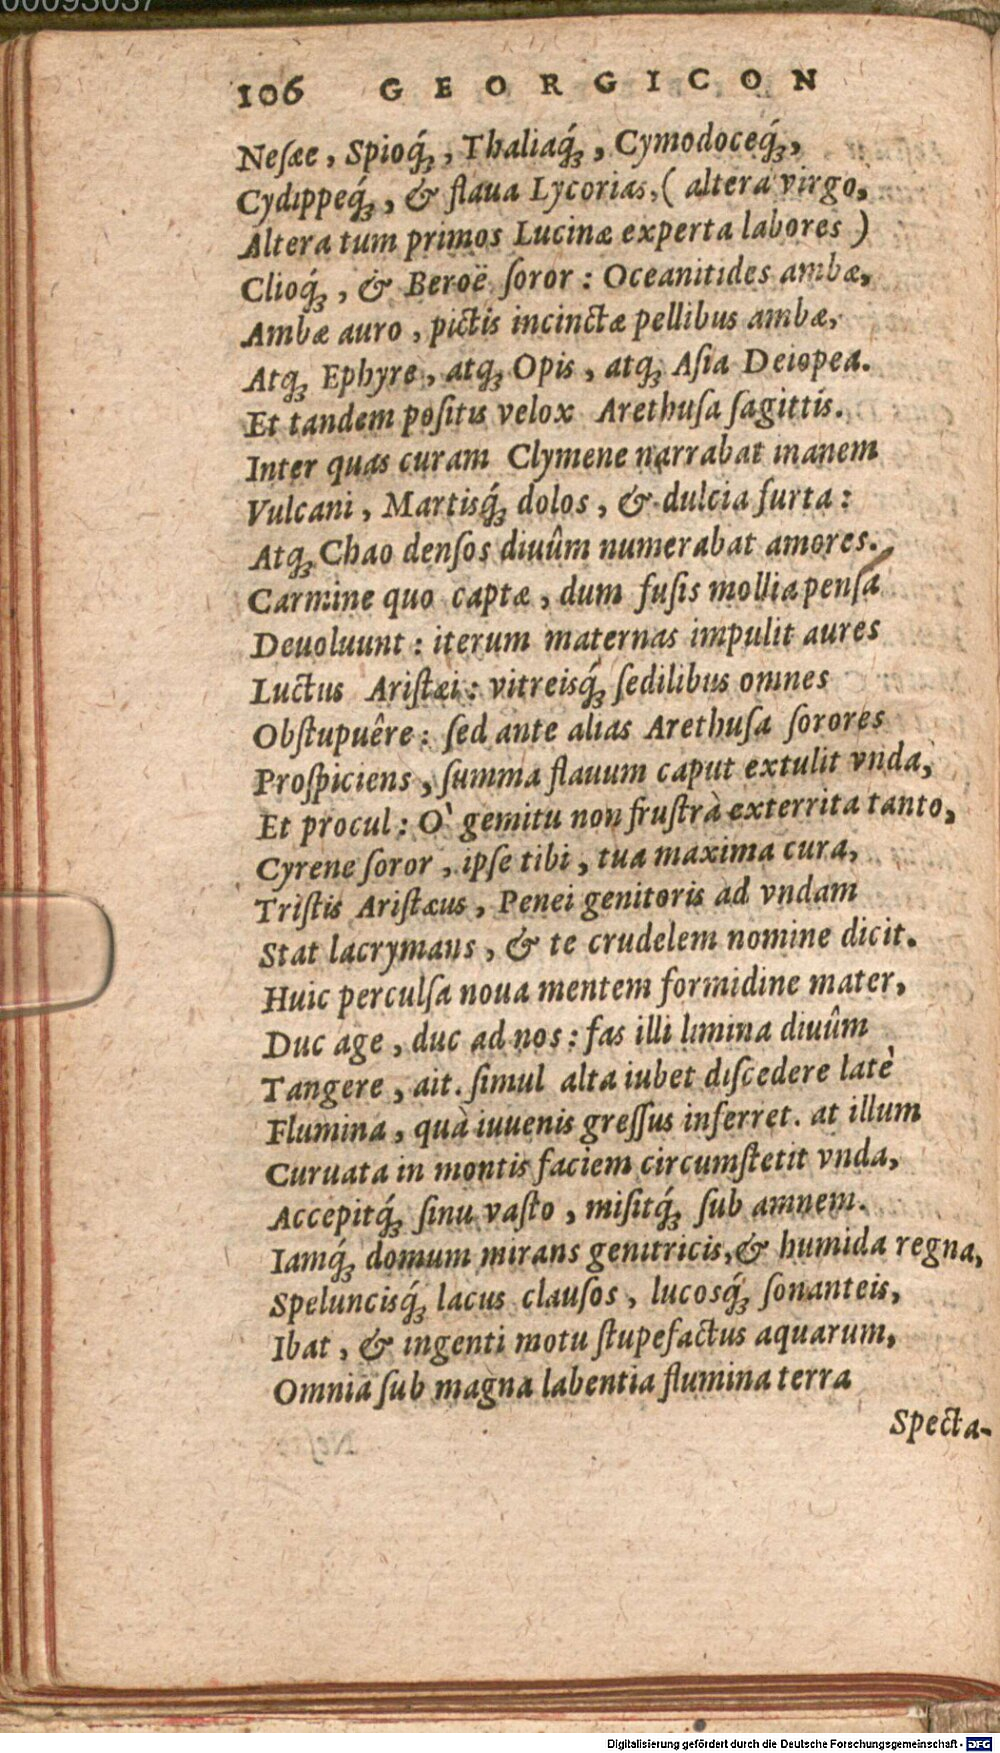 00093037
106 GEORGICON
Neſæe, Spioq́ꝫ, Thaliaq́ꝫ, Cymodoceq́ꝫ,
Cydippeq́ꝫ, & flaua Lycorias, (altera virgo,
Altera tum primos Lucinæ experta labores)
Clioq́ꝫ, & Beroë ſoror: Oceanitides ambæ,
Ambæ auro, pictis incinctæ pellibus ambæ,
Atqꝫ Ephyre, atqꝫ Opis, atqꝫ Aſia Deiopea.
Et tandem poſitis velox Arethuſa ſagittis.
Inter quas curam Clymene narrabat inanem
Vulcani, Martisq́ꝫ dolos, & dulcia furta:
Atqꝫ Chao denſos diuûm numerabat amores.
Carmine quo captæ, dum fuſis mollia penſa
Deuoluunt: iterum maternas impulit aures
Luctus Ariſtæi: vitreisq́ꝫ ſedilibus omnes
Obſtupuêre: ſed ante alias Arethuſa ſorores
Proſpiciens, ſumma flauum caput extulit vnda,
Et procul: Ò gemitu non fruſtrà exterrita tanto,
Cyrene ſoror, ipſe tibi, tua maxima cura,
Triſtis Ariſtæus, Penei genitoris ad vndam
Stat lacrymans, & te crudelem nomine dicit.
Huic perculſa noua mentem formidine mater,
Duc age, duc ad nos: fas illi limina diuûm
Tangere, ait. ſimul alta iubet diſcedere latè
Flumina, quà iuuenis greſſus inferret. at illum
Curuata in montis faciem circumſtetit vnda,
Accepitq́ꝫ ſinu vaſto, miſitq́ꝫ ſub amnem.
Iamq́ꝫ domum mirans genitricis, & humida regna,
Speluncisq́ꝫ lacus clauſos, lucosq́ꝫ ſonanteis,
Ibat, & ingenti motu ſtupefactus aquarum,
Omnia ſub magna labentia flumina terra
Specta-
Digitalisierung gefördert durch die Deutsche Forschungsgemeinschaft - DFG